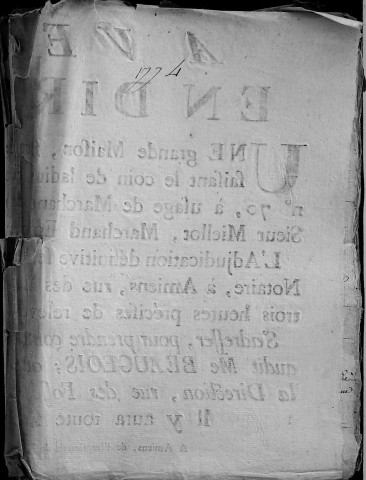 A V E
1774
EN DIR
UNE grande Maison,
faisant le coin de ladi
nº 70, à usage de Marchan
Sieur Miellot, Marchand
L'Adjudication définitive
Notaire, à Amiens, rue des
trois heures précises de rele
S'adresser, pour prendre co
audit Me BEAUGEOIS;
la Direction, rue des
Il y aura toute
A Amiens, de